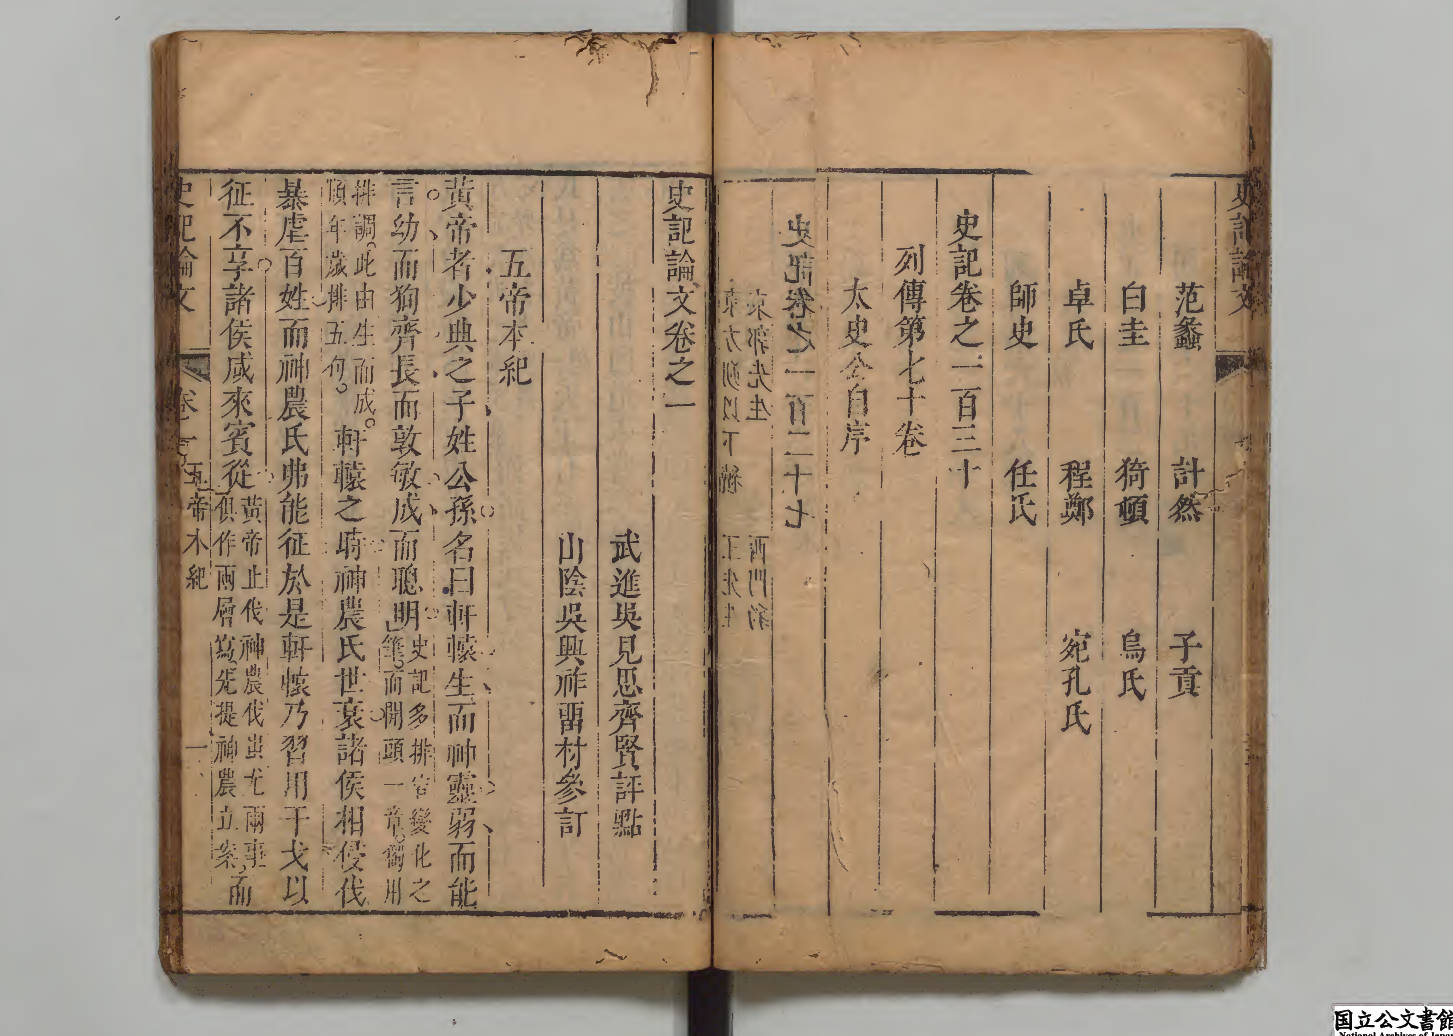 史記論文
范蠡 計然 子貢
白圭 猗頓 烏氏
卓氏 程鄭 宛孔氏
師史 任氏
史記卷之一百三十
列傳第七十卷
太史公自序
史記卷之一百二十七
東郭先生 西門豹
東方朔以下續 王先生
史記論文卷之一
武進吳見思齊賢評點
山陰吳興祚留村參訂
五帝本紀
黃帝者少典之子姓公孫名曰軒轅生而神靈弱而能
言幼而徇齊長而敦敏成而聰明
史記多排宕變化之
筆而開頭一章獨用
排調此由生而成
順年歲排五句
軒轅之時神農氏世衰諸侯相侵伐
暴虐百姓而神農氏弗能征於是軒轅乃習用干戈以
征不享諸侯咸來賓從
黃帝止伐神農伐蚩尤兩事
俱作兩層寫先提神農立案
而
史記論文 卷一 五帝本紀 一
国立公文書館
National Archives of Japan